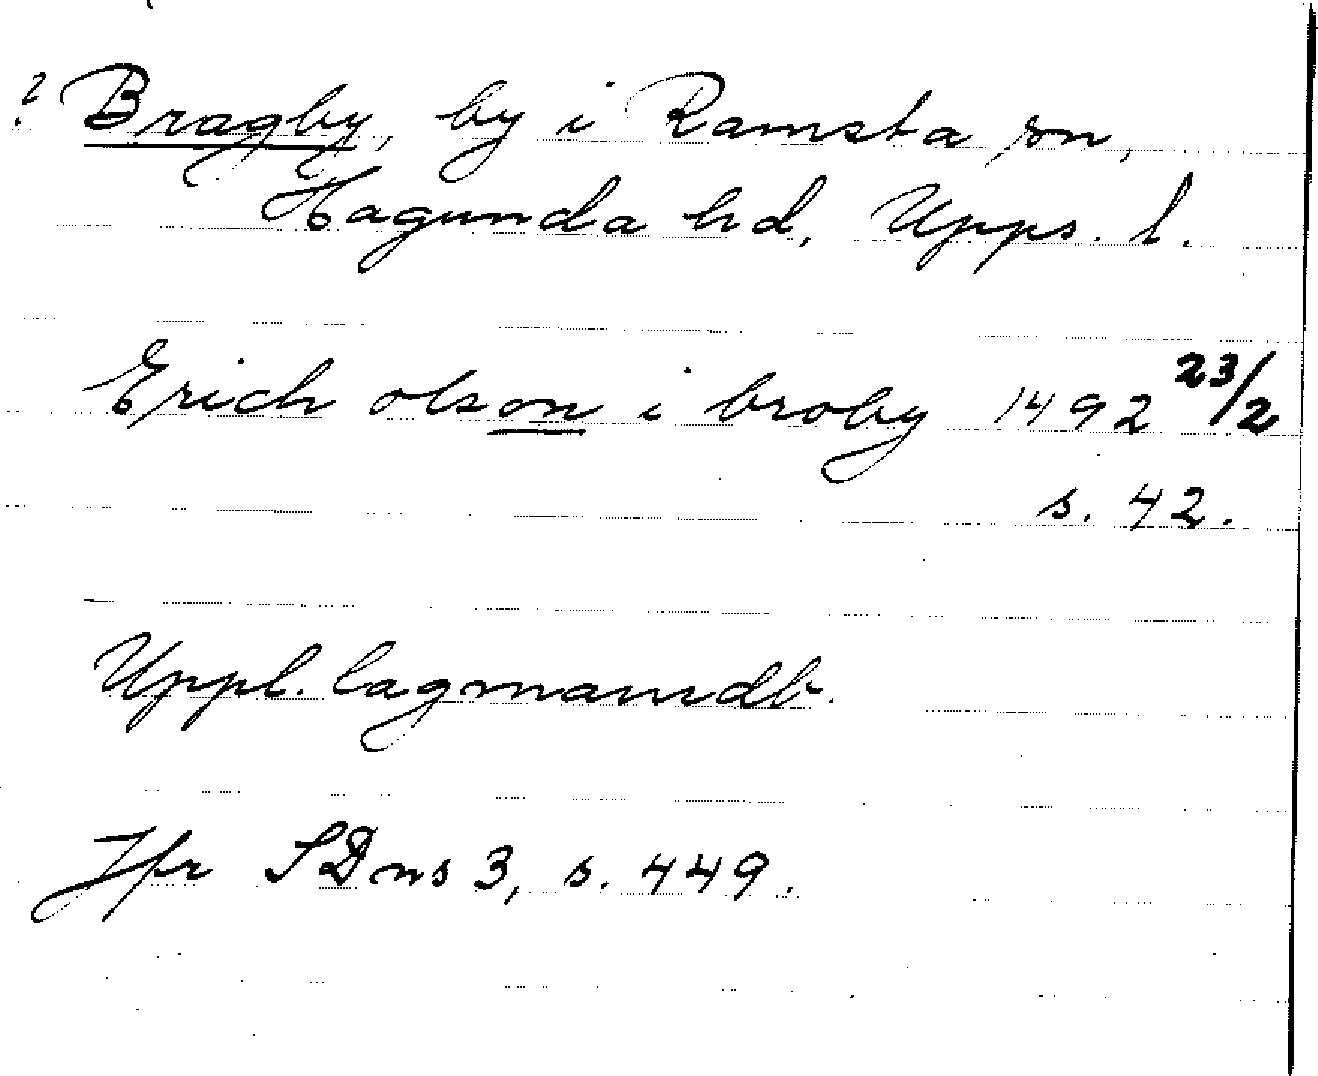 ? Bragby, by i Ramsta sn,
Hagunda hd, Upps. l.
Erich olson i broby 1492 23/2
s. 42.
Uppl. lagmansdb.
Jfr SDns 3, s. 449.